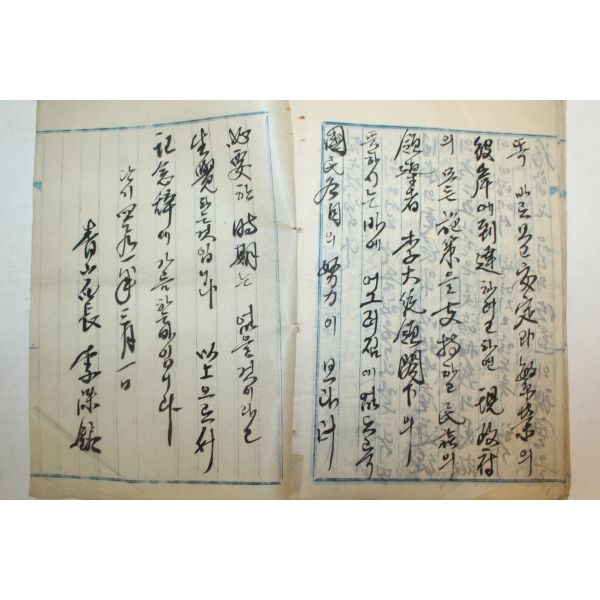 뜩 바른 길 安定과 繁榮의
彼岸에 到達하려고 하면 現政府
의 모든 施策을 支持하고 民族의
領導者 李大統領閣下의
뜻하시는 바에 어그러짐이 없도록
國民各自의 努力이 보다더
必要한 時期는 없을것이라고
生覺하는것입니다 以上으로서
記念辭에 가름하는바입니다
단기 四二九一年 三月一日
靑山面長 李